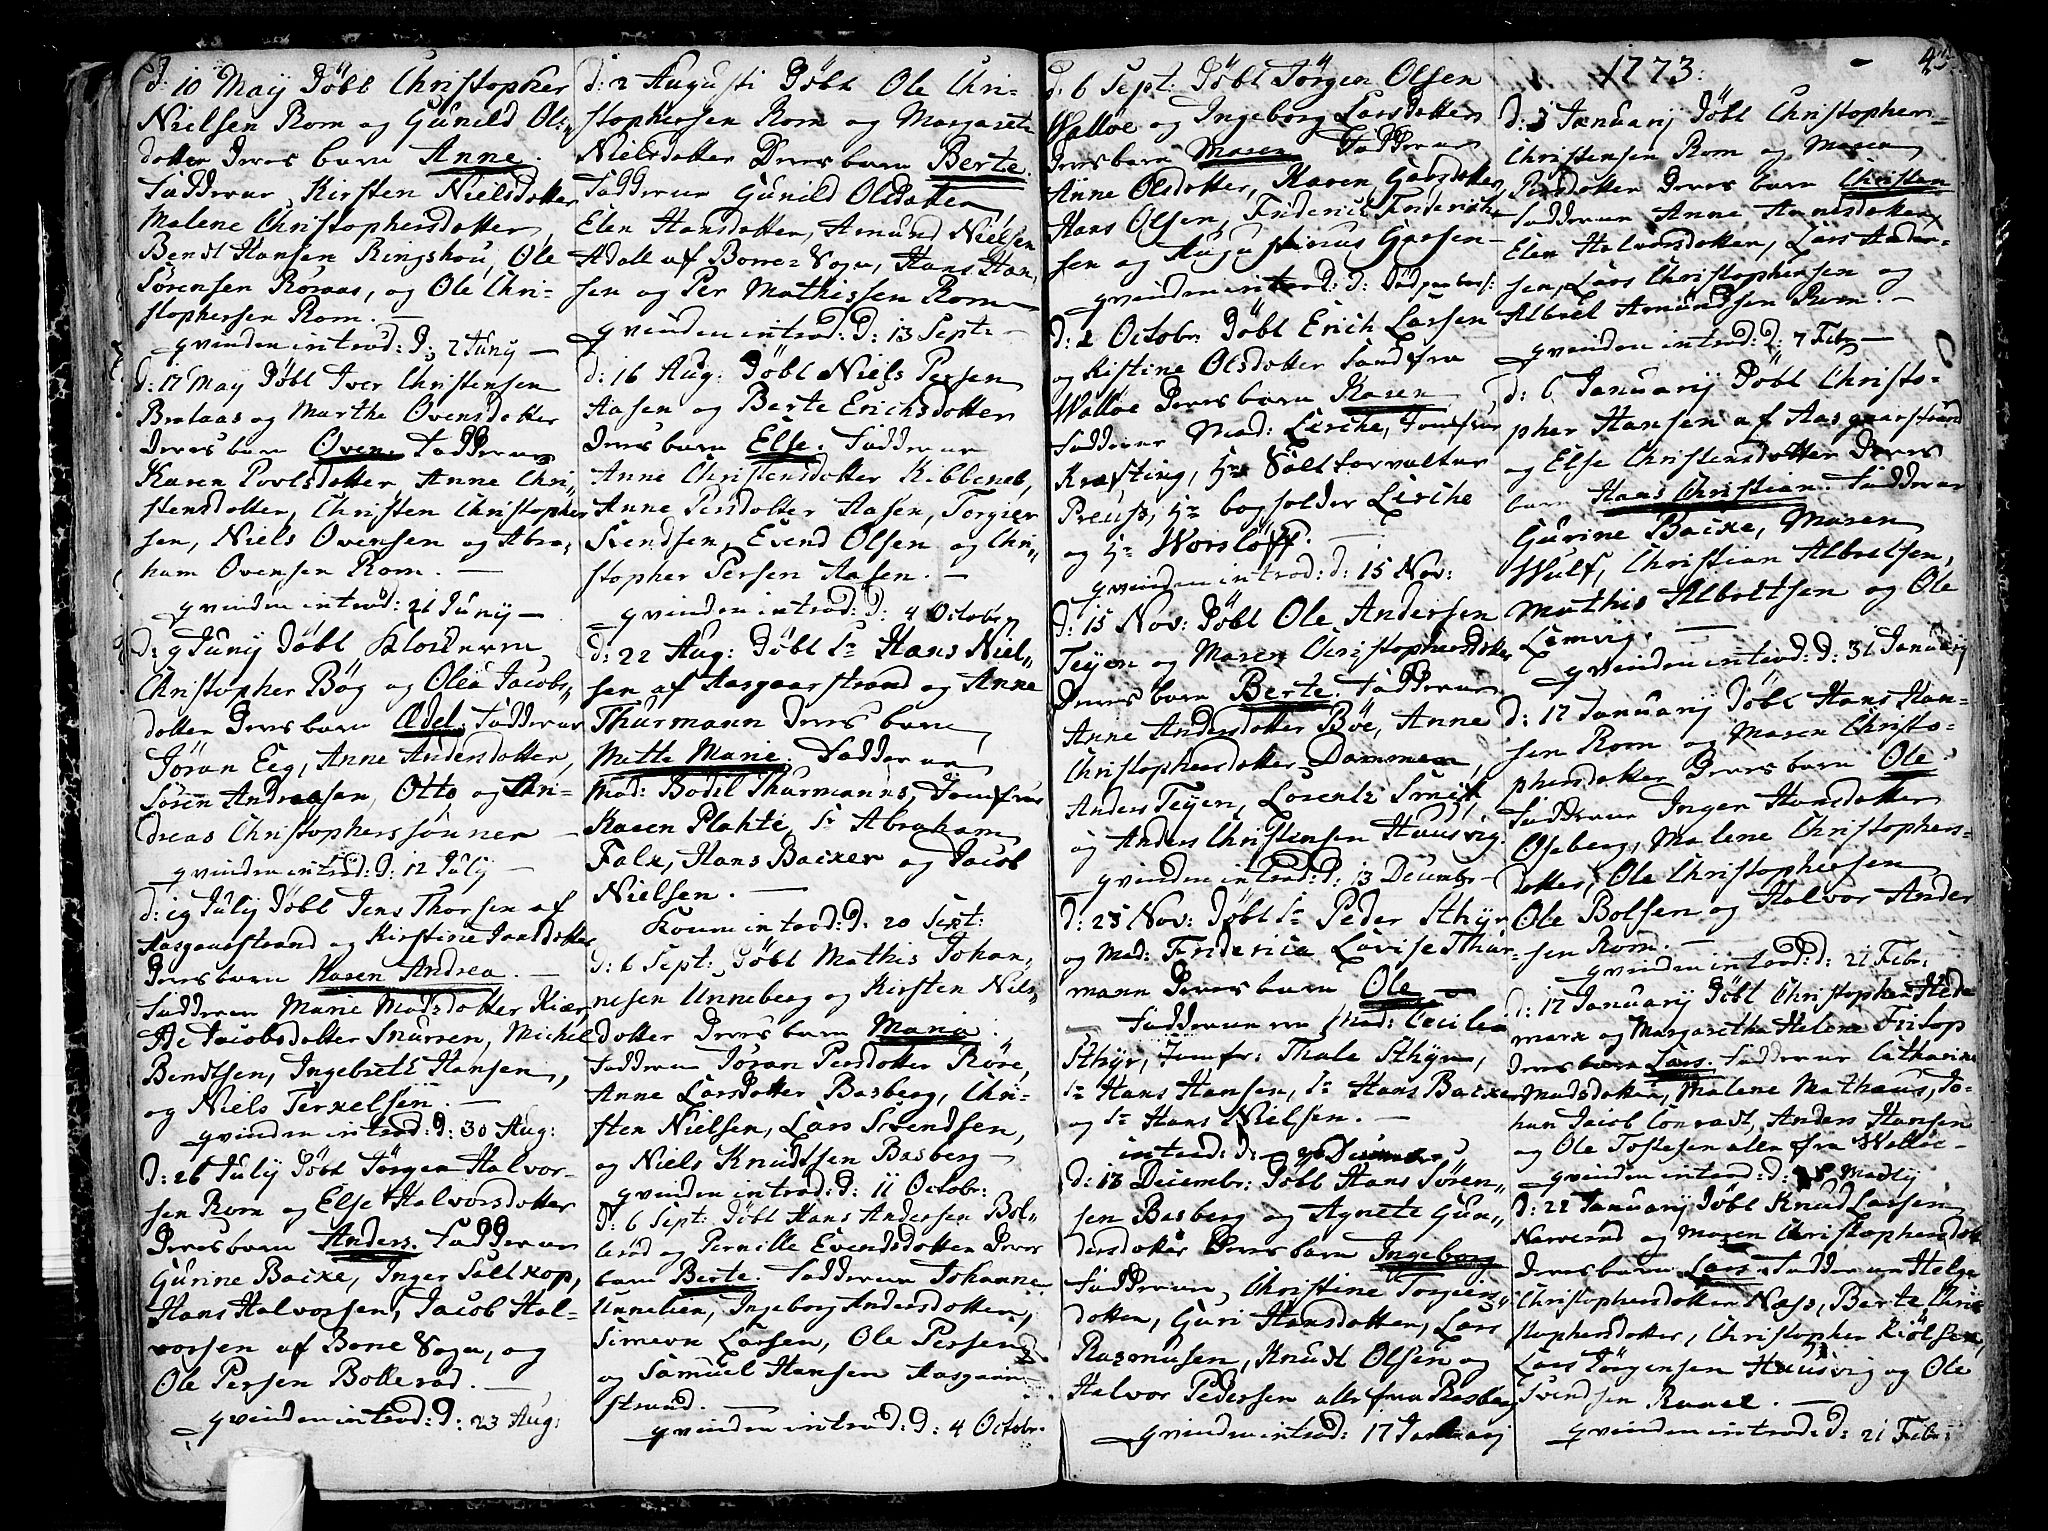 d: 10 Maij Döbt Christopher
Nielsen Rom og Gunild Ols
dotter deres barn Anne.
Fadderne Kirsten Nielsdotter
Malene Christophersdotter,
Bendt Hansen Ringshou, Ole
Sörensen Röraas, og Ole Chri-
stophersen Rom. —
qvinden introd: d: 2 Junij —
d: 17 Maij Döbt Iver Christensen
Brataas og Marthe Ovensdotter
deres barn Oven. Fadderne
Karen Povlsdotter, Anne Chri-
stensdotter, Christen Christopher
sen, Niels Ovensen og Abra-
ham Ovensen Rom. —
qvinden introd: 21 Junij —
d: 9 Junij Döbt Klockeren
Christopher Bög og Olea Jacobs-
dotter deres barn Edel. Fadderne
Jöran Eeg, Anne Andersdotter,
Sören Andreasen, Otto og An-
dreas Christopherssönner —
qvinden introd: d: 12 Julij —
d: 19 Julij Döbt Jens Thorsen af
Aasgaarstrand og Kirstine Jansdotter
deres barn Karen Andrea. —
Fadderne Marie Madsdotter Kiær
Ae Jacobsdotter Snursen, Michel
Bendtsen, Ingebreth Hansen,
og Niels Terkelsen. —
qvinden introd: d: 30 Aug:
d: 26 Julij Döbt Jörgen Halvor-
sen Rom og Else Halvorsdotter
deres barn Anders. Fadderne
Gurine Backe, Inger Saltkop,
Hans Halvorsen, Jacob Hal-
vorsen af Borre Sogn, og
Ole Persen Bollerød. —
qvinden introd: d: 23 Aug:
d: 2 Augusti Döbt Ole Chri-
stophersen Rom og Margarete
Nielsdotter deres barn Berte.
Fadderne Gunild Olsdotter
Elen Hansdotter, Amund Nielsen
Adall af Borre-Sogn, Hans Han-
sen og Per Mathissen Rom
qvinden introd: d: 13 Sept: —
d: 16 Aug: Döbt Niels Persen
Aasen og Berte Erichsdotter
deres barn Else. Fadderne
Anne Christensdotter Kibbeneb,
Anne Persdotter Aasen, Torgier
Svendsen, Evend Olsen og Chri-
stopher Persen Aasen. —
qvinden introd: d: 4 Octobr
d: 22 Aug: Döbt Sr Hans Niel-
sen af Aasgaarstrand og Anne
Thurmann deres barn
Mette Marie. Fadderne
Mad: Bodil Thurmanns, Jomfrue
Karen Plahte, Sr Abraham
Falx, Hans Backer og Jacob
Nielsen. —
Konen introd: d: 20 Sept:
d: 6 Sept: Döbt Mathis Johan-
nesen Unneberg og Kirsten Niels-
dotter deres barn Maria.
Fadderne Jöran Persdotter Röre,
Anne Larsdotter Basberg, Chri-
sten Nielsen, Lars Svendsen,
og Niels Knudtsen Basberg —
qvinden introd: d: 11 Octobr:
d: 6 Sept: Döbt Hans Andersen Bol-
leröd og Pernille Evendsdotter deres
barn Berte. Fadderne Johanne
Unnelien, Ingeborg Andersdotter,
Simen Larsen, Ole Persen
og Samuel Hansen Aasgaar-
strand. —
qvinden introd: d: 4 Octobr.
d: 6 Sept: Döbt Jörgen Olsen
Walløe og Ingeborg Larsdotter
deres barn Maren. Fadderne
Anne Olsdotter, Karen Garsdotter,
Hans Olsen, Friderick Friderich-
sen og Augustinus Garsen —
qvinden introd: d:
d: 2 Octobr: Döbt Erich Larsen
og Kistine Olsdotter Sand fra
Walløe deres barn Karen,
Fadderne Mad: Lerche, Jomfrue
Krafting, Hr Saltforvalter
Preuss, Hr bogholder Lerche
og Hr Worsløff. —
qvinden introd: d: 15 Nov:
d: 15 Nov: Döbt Ole Andersen
Teyen og Maren Christophersdotter
deres barn Berte. Fadderne
Anne Andersdotter Bøe, Anne
Christophersdotter Dammen,
Anders Teyen, Lorentz Smidt
og Anders Christensen Huusvig.
qvinden introd: d: 13 Decembr —
d: 25 Nov: Döbt Sr Peder Sthyr
og Mad: Friderica Lovise Thur-
mann deres barn Ole —
Fadderne ere Mad: Cecilea
Sthyr, Jomfr: Thale Sthyr,
Sr Hans Hansen, Sr Hans Backer
og Sr Hans Nielsen. —
introd: d:
d: 13 Decembr: Döbt Hans Sören-
sen Basberg og Agnete Gun-
dersdotter deres barn Ingeborg
Fadderne, Christine Torgers-
dotter, Guri Hansdotter, Lars
Rasmusen, Knudt Olsen og
Halvor Pedersen alle fra Basberg
qvinden introd: 17 Januarij
1773: — 45.
d: 3 Januarij Döbt Christopher
Christensen Rom og Maren
Persdotter deres barn Christen
Fadderne Anne Arnesdotter,
Elen Halvorsdotter, Lars Ander-
sen, Lars Christophersen og
Albret Amundsen Rom. —
qvinden introd: d: 7 Febr —
d: 6 Januarij Döbt Christo-
pher Hansen af Aasgaarstrand
og Else Christensdotter deres
barn Hans Christian. Fadderne
Gurine Backe, Maren
Wulf, Christian Albretsen,
Mathis Albretsen og Ole
Lemvig. —
qvinden introd: d: 31 Januarij
d: 17 Januarij Döbt Hans Han-
sen Rom og Maren Christo-
phersdotter deres barn Ole.
Fadderne Inger Hansdotter
Oseberg, Malene Christophers-
dotter, Ole Christophersen
Ole Bolsen og Halvor Ander
sen Rom. —
qvinden introd: d: 21 Febr:
d: 17 Januarij Döbt Christopher Hede
marx og Margaretha Helena Fritsop
deres barn Lars. Fadderne Catharina
Madsdotter, Malene Mathæus, Jo-
han Jacob Conradt, Anders Hansen
og Ole Tostesen alle fra Walløe —
qvinden introd: d: Martij
d: 22 Januarij Döbt Knud Larsen
Narveröd og Maren Christophersdott
deres barn Lars. Fadderne Helge
Christophersdotter Næss, Berte Chri
stophersdotter, Christopher Kiölsen,
Lars Jörgensen Huusvig og Ole
Svendsen Ravel. —
qvinden introd: d: 21 Febr: